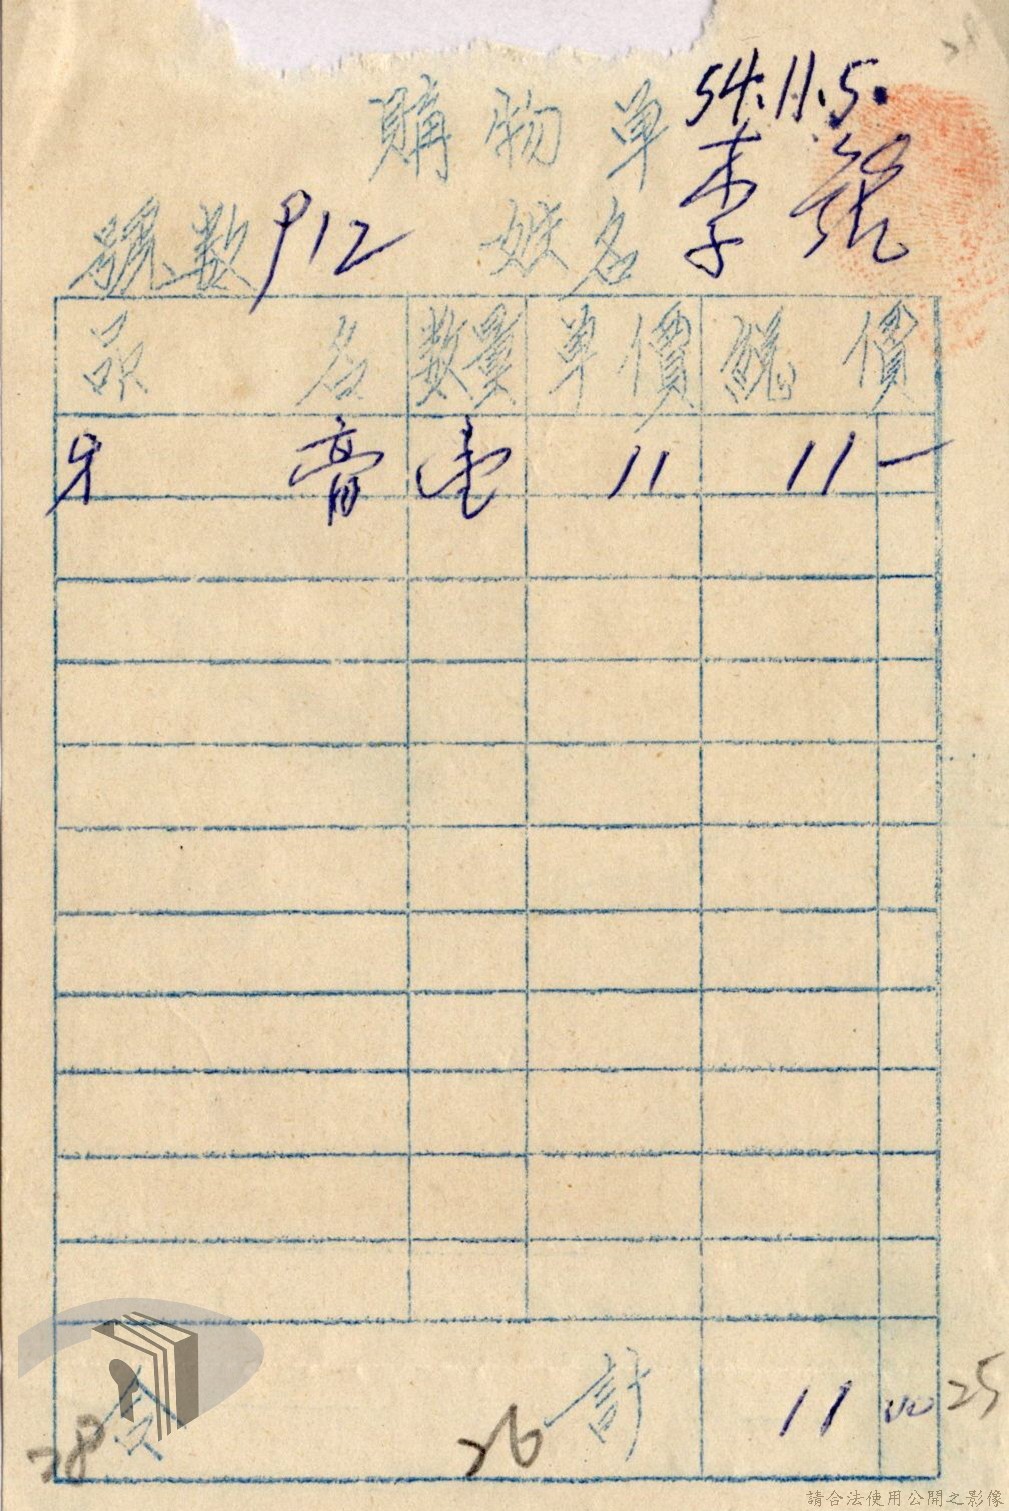 54.11.5.
購物单
號数 912 姓名 李
品名 数量 单價 總價
牙膏 壹 11 11-
合計 11 00
25
28
26
請合法使用公開之影像